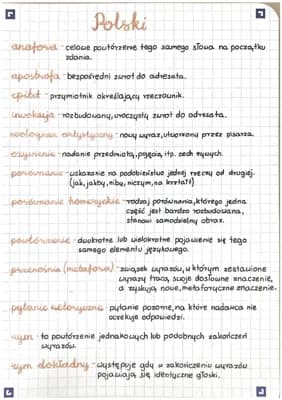 Polski
anafora - celowe powtórzenie tego samego słowa na początku
zdania.
apostrofa - bezpośredni zwrot do adresata.
epitet - przymiotnik określający rzeczownik.
inwokacja - rozbudowany, uroczysty zwrot do adresata.
neologizm artystyczny - nowy wyraz, utworzony przez pisarza.
ożywienie - nadanie przedmiotą, pojęcią, itp. cech żywych.
porównanie - wskazanie na podobieństwo jednej rzeczy do drugiej.
(jak, jakby, niby, niczym, na kształt)
porównanie homeryckie - rodzaj porównania, którego jedna
część jest bardzo rozbudowana,
stanowi samodzielny obraz.
powtórzenie - dwukrotne lub wielokrotne pojawienie się tego
samego elementu językowego.
przenośnia (metafora) - związek wyrazów, w którym zestawione
wyrazy tracą swoje dosłowne znaczenie,
a zyskują nowe, metaforyczne znaczenie.
pytanie retoryczne - pytanie pozorne, na które nadawca nie
oczekuje odpowiedzi.
rym - to powtórzenie jednakowych lub podobnych zakończeń
wyrazów.
rym dokładny - występuje gdy w zakończeniu wyrazów
pojawiają się identyczne głoski.